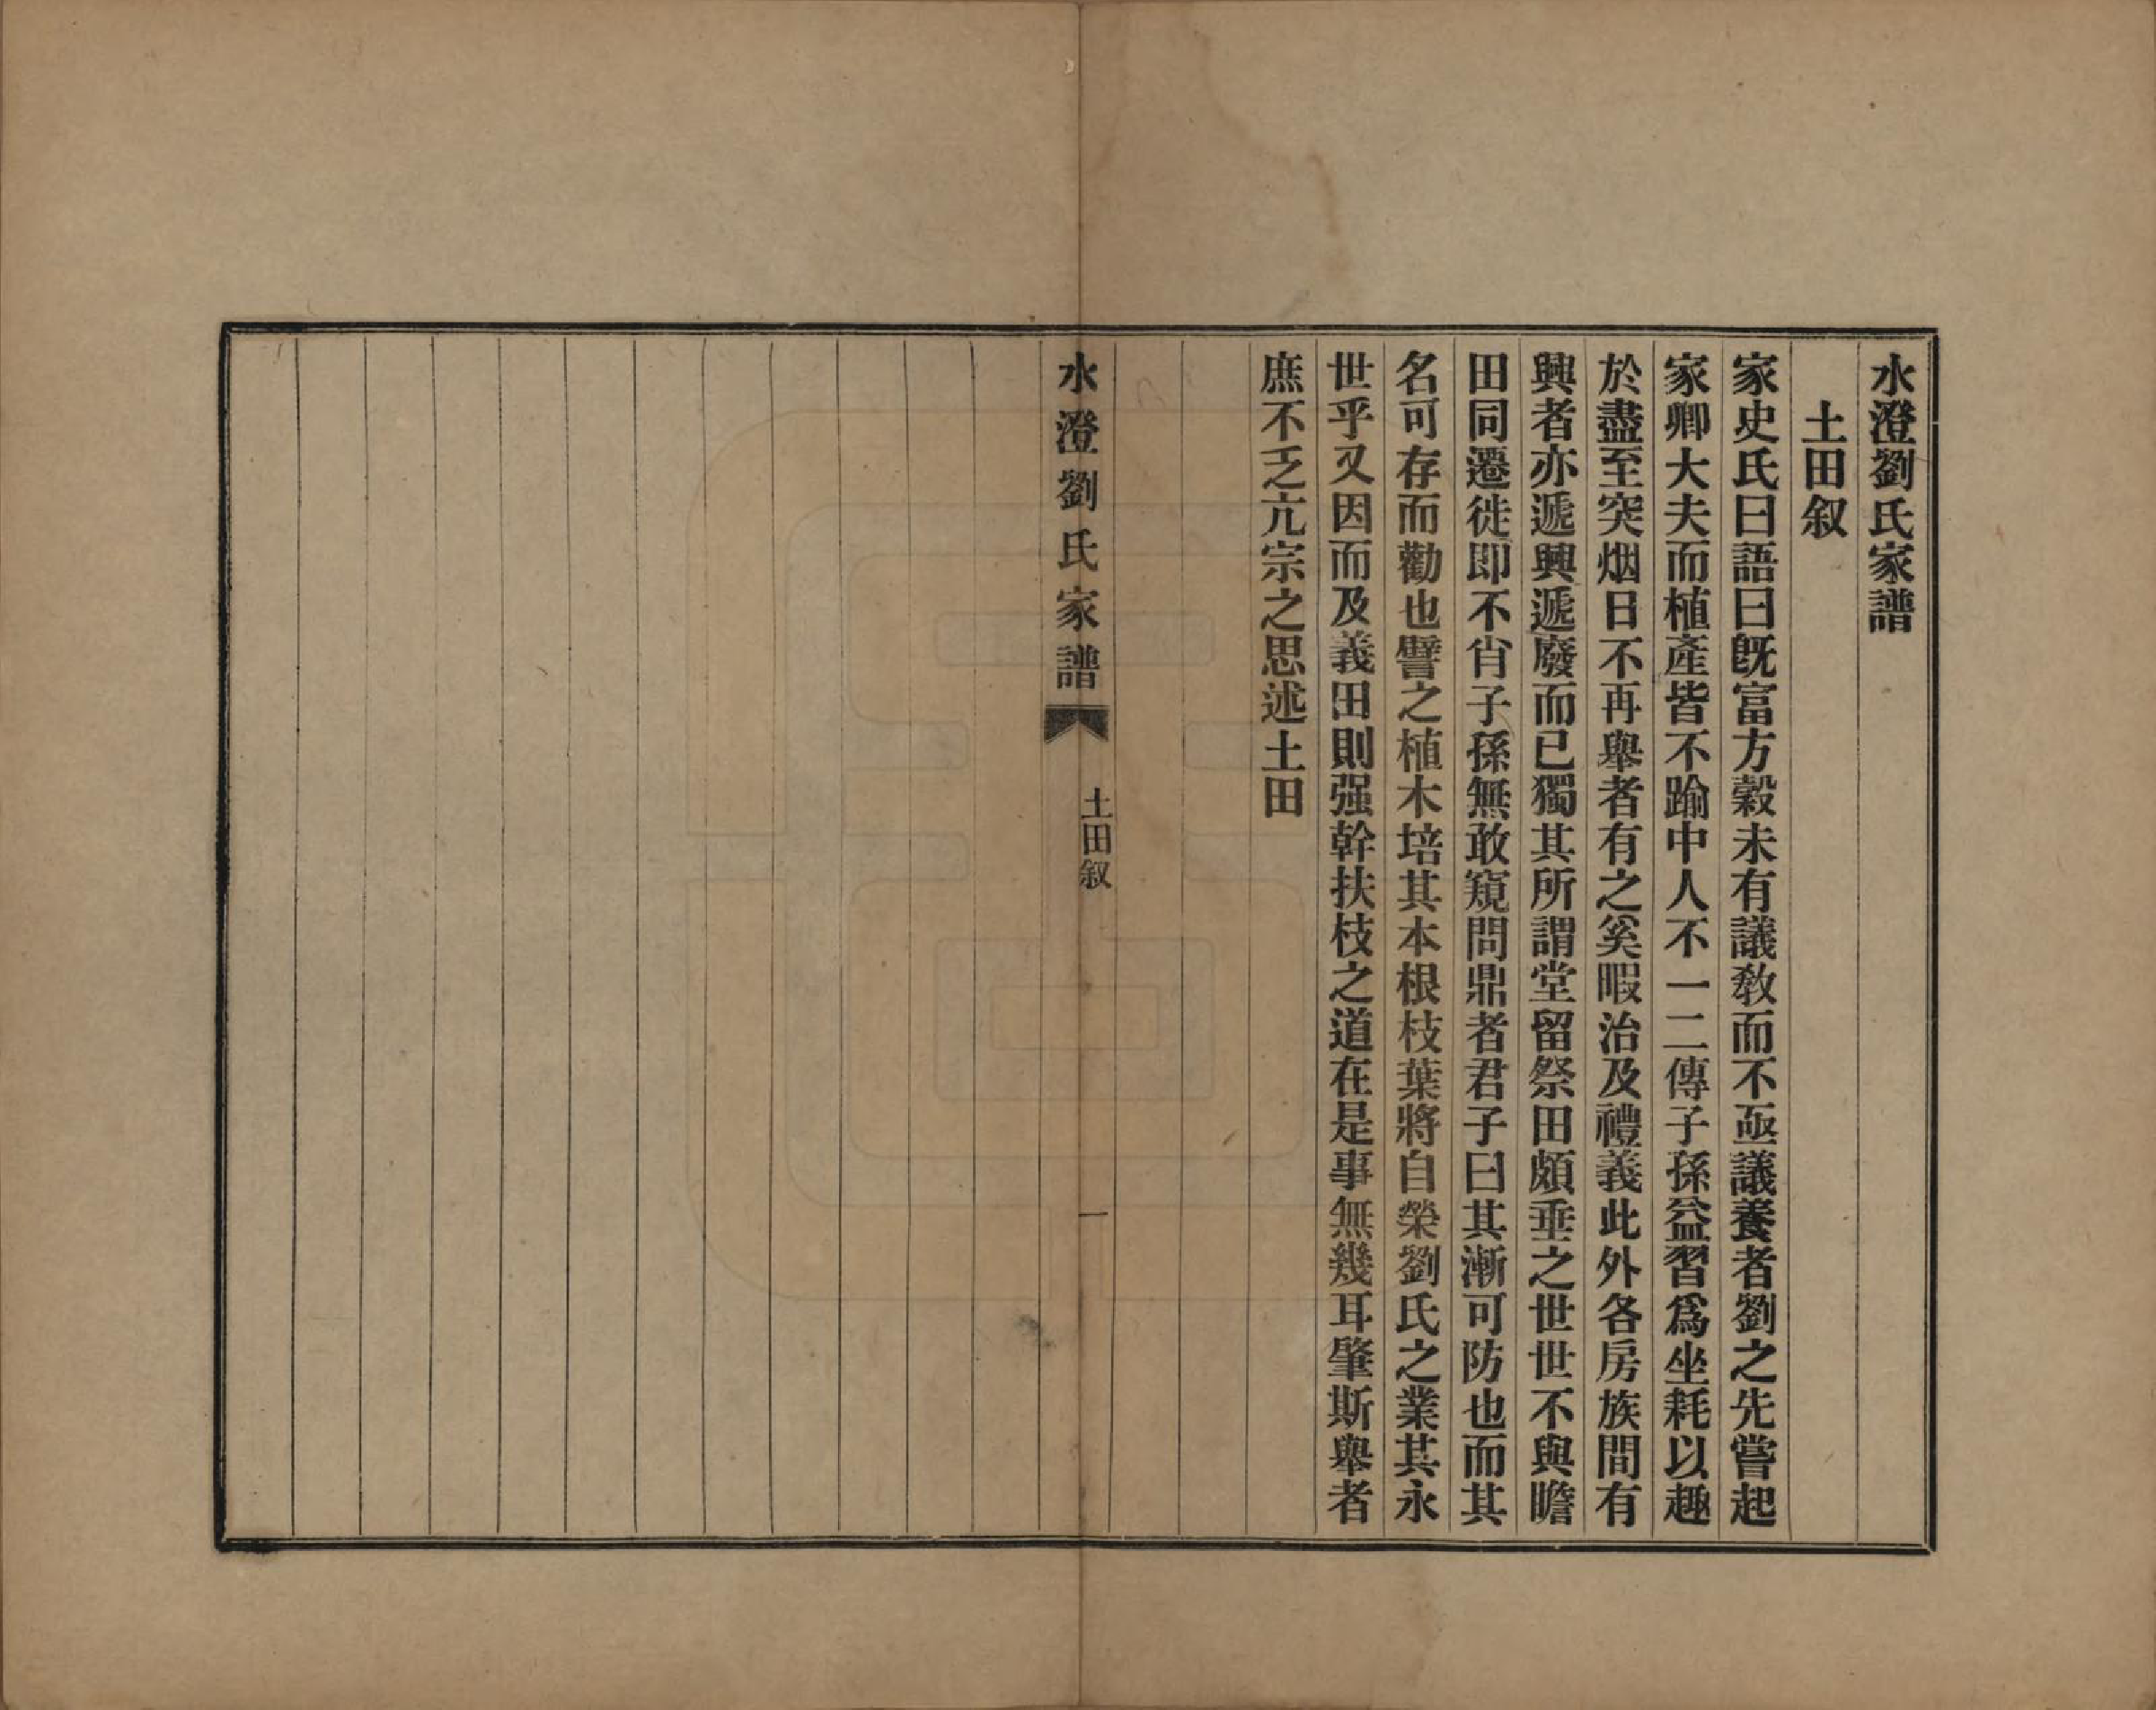 水澄劉氏家譜
土田叙
家史氏曰語曰旣富方穀未有議敎而不亟議養者劉之先嘗起
家卿大夫而植產皆不踰中人不一二傳子孫益習爲坐耗以趣
於盡至突烟日不再舉者有之奚暇治及禮義此外各房族間有
興者亦遞興遞廢而已獨其所謂堂留祭田頗垂之世世不與瞻
田同遷徙即不肖子孫無敢窺問鼎者君子曰其漸可防也而其
名可存而勸也譬之植木培其本根枝葉將自榮劉氏之業其永
世乎又因而及義田則强幹扶枝之道在是事無幾耳肇斯舉者
庶不乏亢宗之思述土田
水澄劉氏家譜
土田叙
一